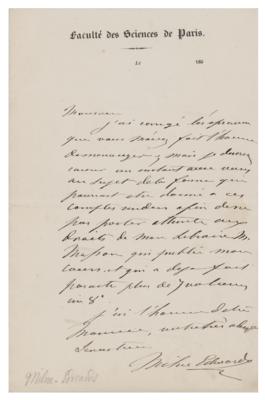 Faculté des Sciences de Paris.
Le 186
Monsieur
J'ai corrigé les épreuves
que vous m'avez fait l'honneur
de m'envoyer, mais je désire
causer un instant avec vous
au sujet de la forme que
pourrait être donné à ces
comptes rendus afin de ne
pas porter atteinte aux
droits de mon libraire M.
Masson qui publie mon
cours et qui a déjà fait
paraître plus de 7 volumes
in 8°
J'ai l'honneur d'être
Monsieur, votre très
Serviteur
Milne Edwards
Milne-Edwards